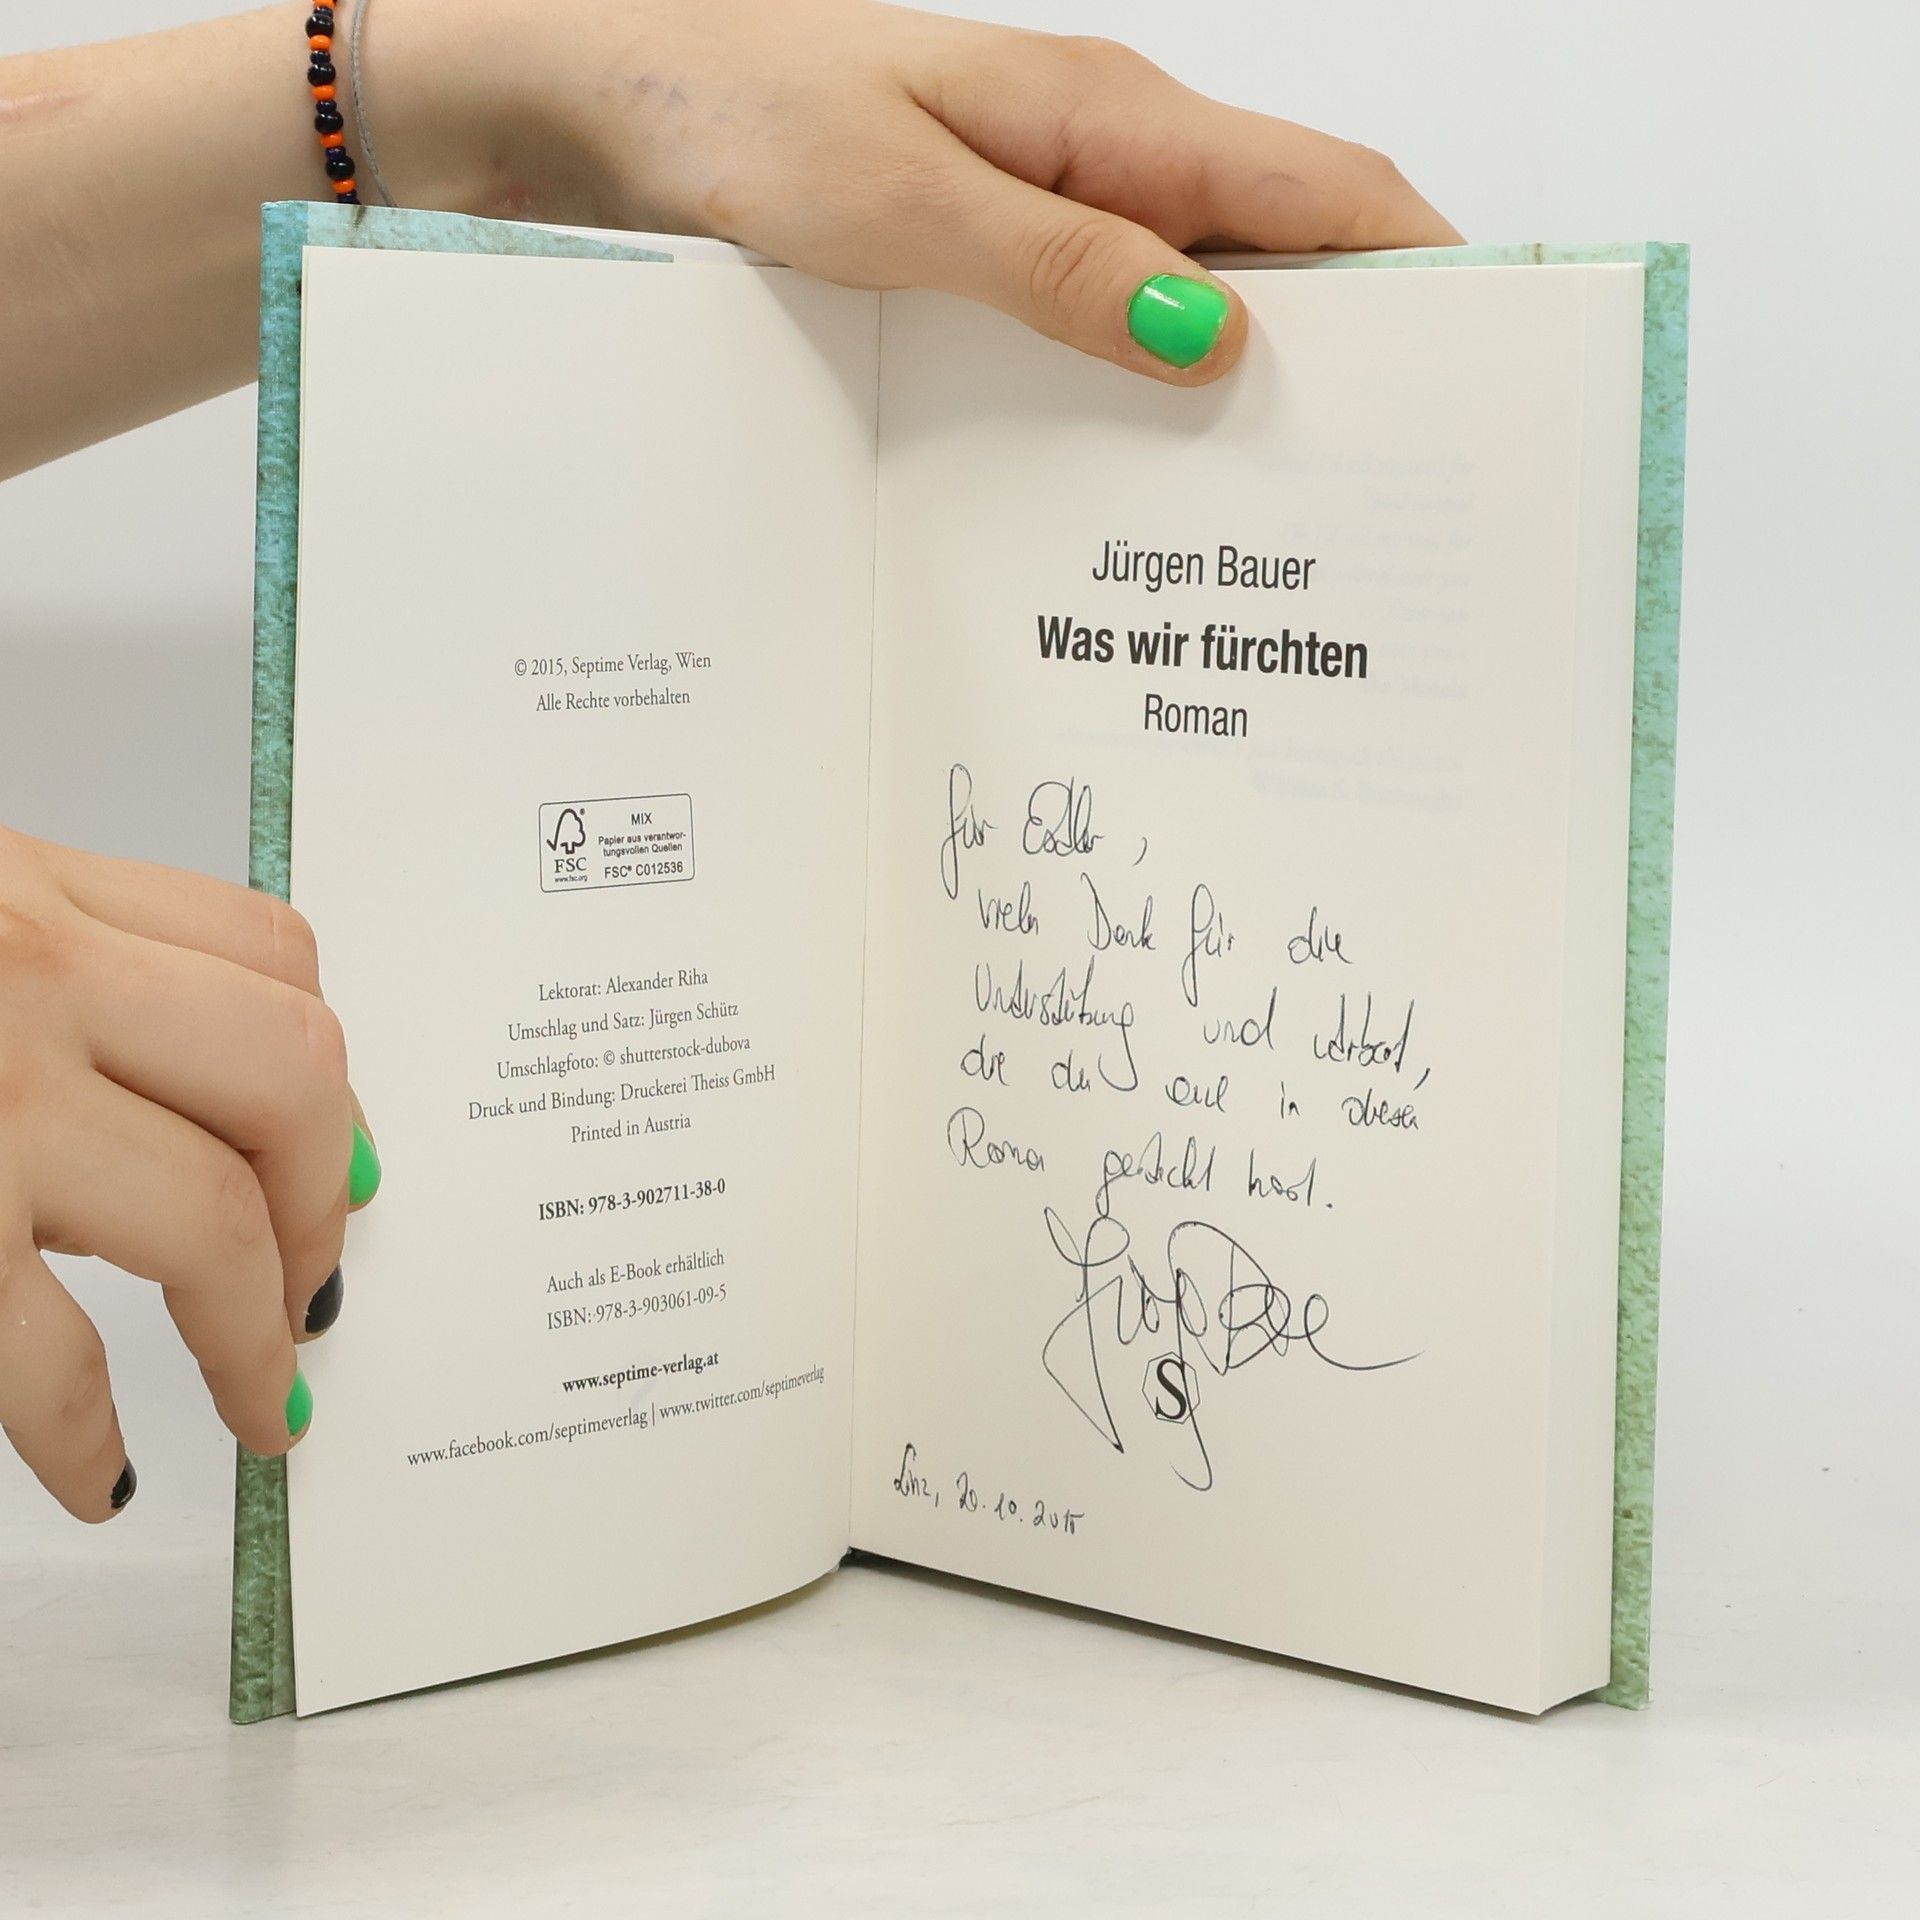 © 2015, Septime Verlag, Wien
Alle Rechte vorbehalten
FSC®
www.fsc.org
MIX
Papier aus verantwor-
tungsvollen Quellen
FSC® C012536
Lektorat: Alexander Riha
Umschlag und Satz: Jürgen Schütz
Umschlagfoto: © shutterstock-dubova
Druck und Bindung: Druckerei Theiss GmbH
Printed in Austria
ISBN: 978-3-902711-38-0
Auch als E-Book erhältlich
ISBN: 978-3-903061-09-5
www.septime-verlag.at
www.facebook.com/septimeverlag | www.twitter.com/septimeverlag
Jürgen Bauer
Was wir fürchten
Roman
Für
vielen Dank für die
Unterstützung und
die du auch in diesen
Roman gesteckt hast.
S
Linz, 20.10.2015